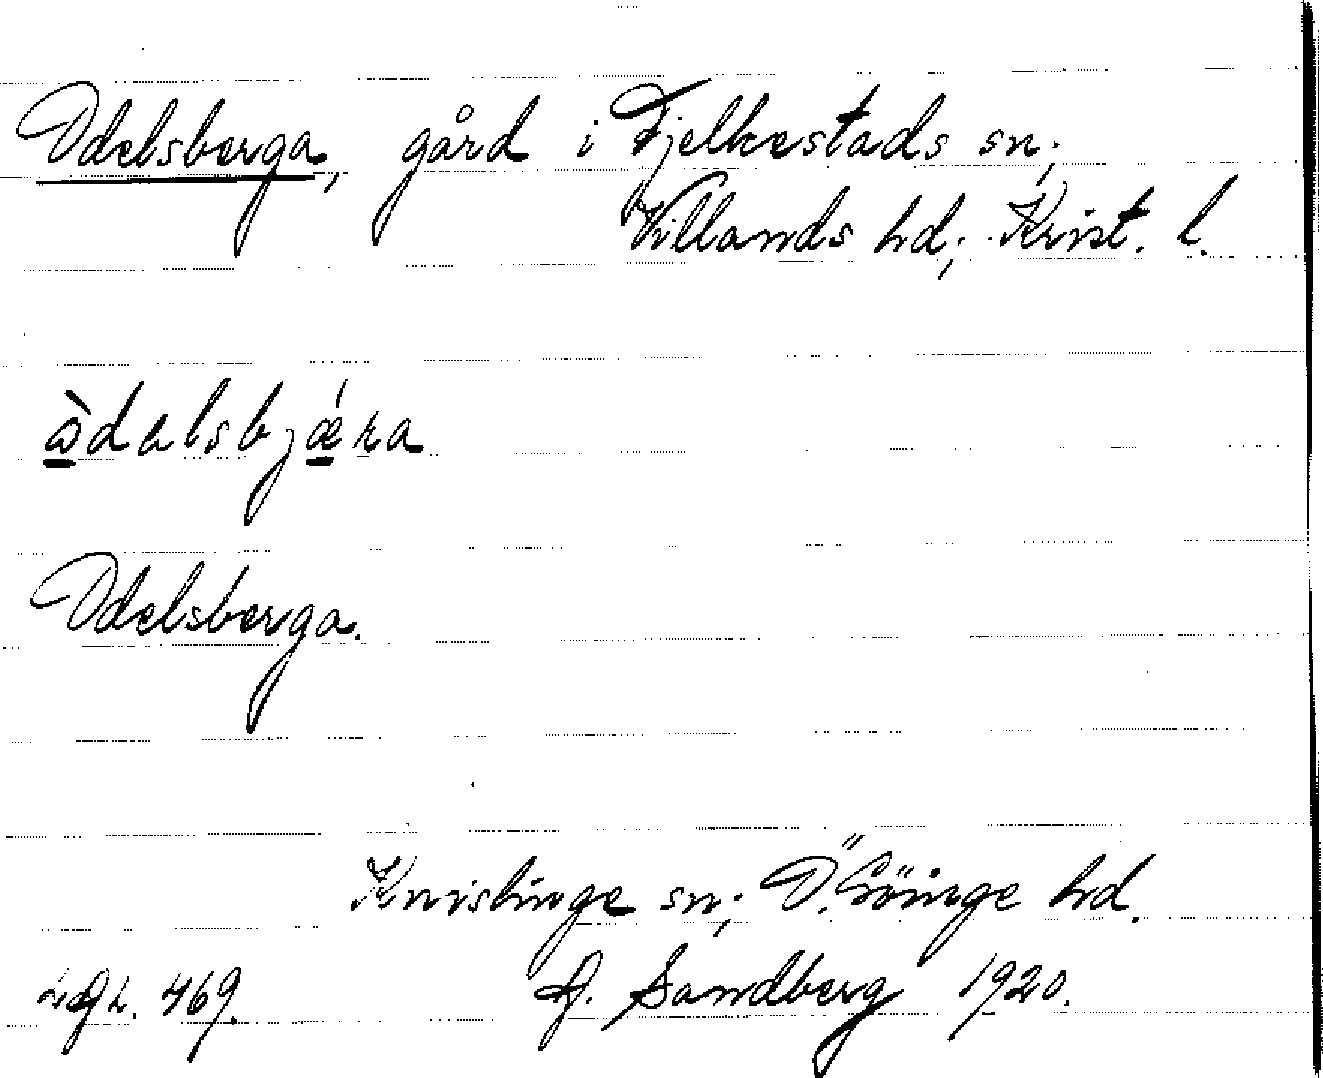 Odelsberga, gård i Fjelkestads sn;
Villands hd; Krist. l.
ò̱dalsbjǽ̱ra
Odelsberga.
Knislinge sn; Ö. Göinge hd.
469. Sandberg 1920.